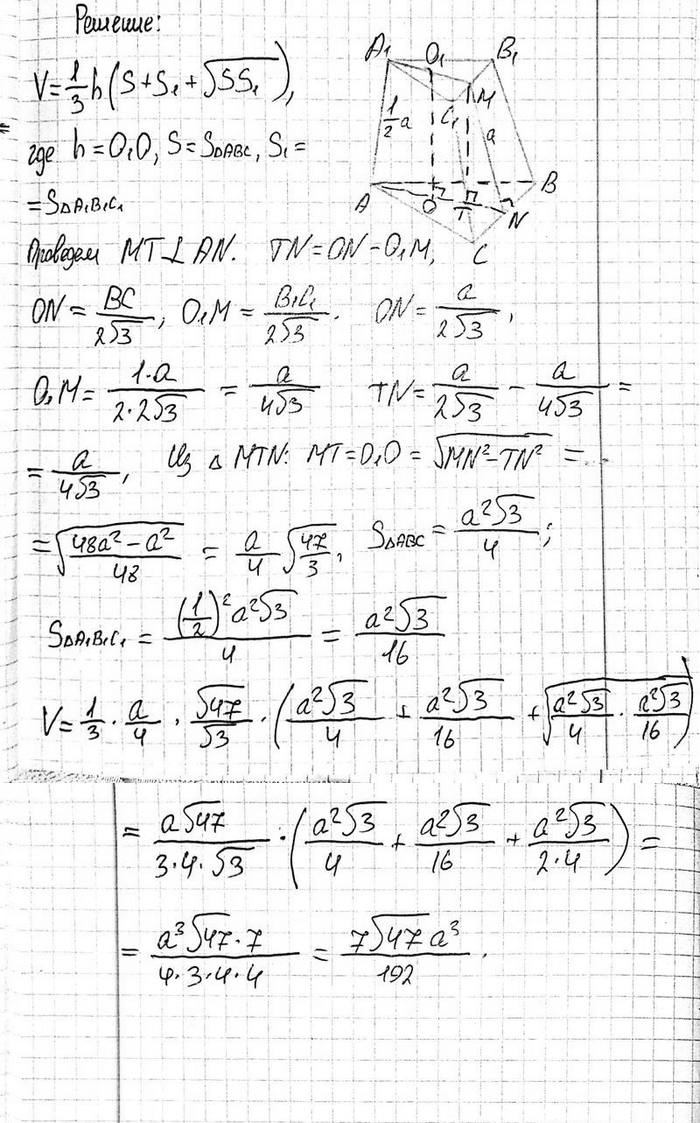 Решение:
V=1/3 h(S+S₁+√SS₁),
где h=O₁O, S=S△ABC, S₁=
=S△A₁B₁C₁
A₁ O₁ B₁
M
C₁
1/2 a
a
A O T N B
C
Проведем MT⊥AN. TN=ON-O₁M,
ON=BC/2√3, O₁M=B₁C₁/2√3. ON=a/2√3,
O₁M=1·a/2·2√3=a/4√3 TN=a/2√3-a/4√3=
=a/4√3, Из △MTN: MT=O₁O=√(MN²-TN²)=
=√((48a²-a²)/48)=a/4 √(47/3), S△ABC=a²√3/4;
S△A₁B₁C₁=(1/2)²a²√3/4=a²√3/16
V=1/3·a/4·√47/√3·(a²√3/4+a²√3/16+√(a²√3/4·a²√3/16))
=a√47/3·4·√3·(a²√3/4+a²√3/16+a²√3/2·4)=
=a³√47·7/4·3·4·4=7√47a³/192.